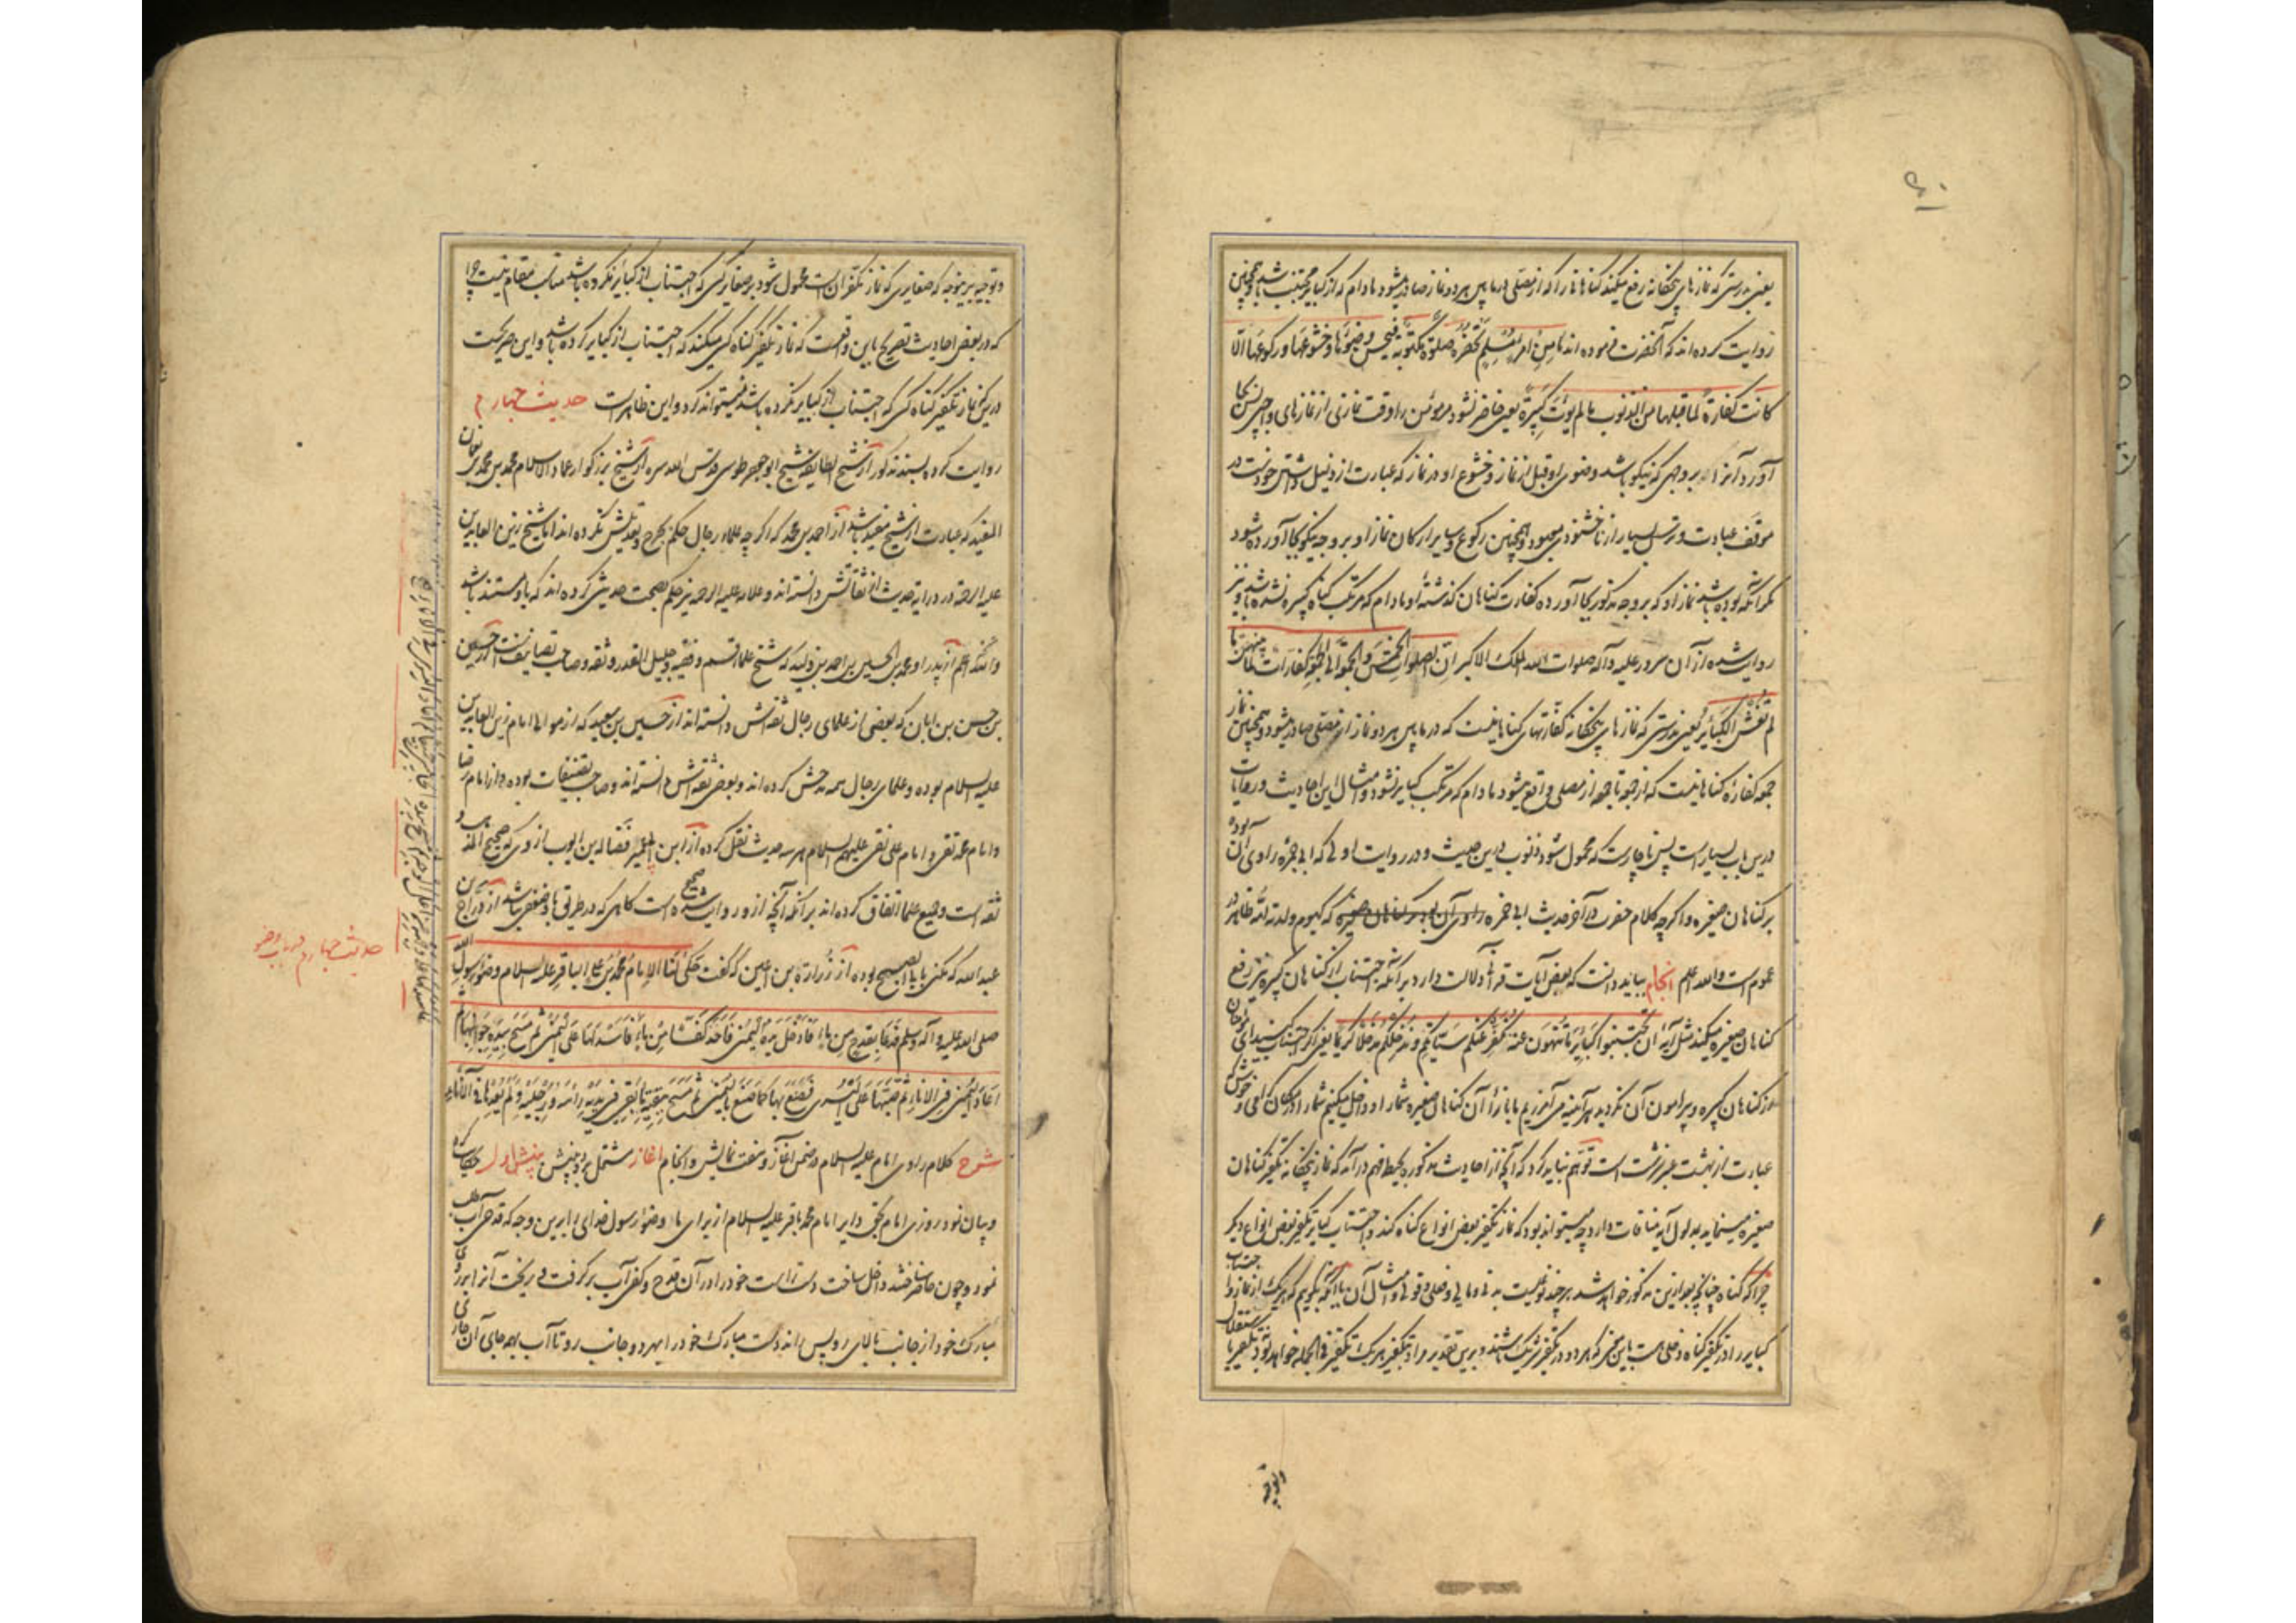 یعنی بدرستی که نمازهای پنجگانه رفع میکند گناهانی را که از مصلی درمابین هر دو نماز صادر میشود مادام که از کبایر مجتنب باشد و همچنین
روایت کرده اند که آنحضرت فرموده اند ما من امرء مسلم تحضره صلوة مکتوبة فیحسن وضوئها و خشوعها و رکوعها الا
کانت کفارة لما قبلها من الذنوب ما لم یؤت کبیرة یعنی حاضر نشود مر مؤمن را وقت نمازی از نمازهای واجبی پس بجا
آورد آنرا بر وجهی که نیکو باشد وضوی او قبل از نماز و خشوع او در نماز که عبارت از ذلیل داشتن خودست در
موقف عبادت و ترس بسیار از ناخشنودی معبود و همچنین رکوع و سایر ارکان نماز او بر وجه نیکو بجا آورده شود
مگر آنکه بوده باشد نماز او که بر وجه مذکور بجا آورده کفارت گناهان گذشتۀ او مادام که مرتکب گناه کبیره نشده باشد و نیز
روایت شده از آن سرور علیه و آله صلوات الله الملک الاکبر ان الصلوات الخمس و الجمعة الی الجمعة کفارات لما بینهن ما
لم تغش الکبایر یعنی بدرستی که نمازهای پنجگانه کفارتهای گناهانیست که درمابین هر دو نماز از مصلی صادر میشود و همچنین نماز
جمعه کفارۀ گناهانیست که از جمعه تا جمعه از مصلی واقع میشود مادام که مرتکب کبایر نشود و امثال این احادیث و روایات
درین باب بسیارست پس ناچارست که محمول شود ذنوب درین حدیث و در روایت اولی که ابی حمزه راوی آن بوده
بر گناهان صغیره و اگرچه کلام حضرت در آخر حدیث ابی حمزه راوی آن بوده بر گناهان صغیره که کیوم ولدته امه ظاهر در
عموم است والله اعلم انجام بباید دانست که بعض آیات قرآنی دلالت دارد بر آنکه اجتناب از گناهان کبیره نیز رفع
گناهان صغیره میکند مثل آیۀ ان تجتنبوا کبایر ما تنهون عنه نکفر عنکم سیئاتکم و ندخلکم مدخلا کریما یعنی اگر اجتناب کنید ای مؤمنان
از گناهان کبیره و پیرامون آن نگردید هر آینه می آمرزیم ما بازاء آن گناهان صغیره شما را و داخل میکنیم شما را در مکان گرامی و خوش که
عبارت از بهشت عنبر سرشت است توهم نباید کرد که آنچه از احادیث مذکوره بحیطه فهم در آمد که نماز پنجگانه تکفیر گناهان
صغیره مینماید بمدلول آیه منافات دارد چه میتواند بود که نماز تکفیر بعض انواع گناه کند و اجتناب کبایر تکفیر بعض انواع دیگر
چرا که گناه چنانچه بعد ازین مذکور خواهد شد بر چند نوعست بدنی و مالی و فعلی و قولی و امثال آن یا آنکه بگوییم که هر یک از نماز و اجتناب
کبایر را در تکفیر گناه دخلی هست باین معنی که هر دو در تکفیر شریک باشند و برین تقدیر مراد بتکفیر هر یک تکفیر فی الجمله خواهد بود نه تکفیر با استقلال
و توجیه
و توجیه بر اینوجه که صغایری که نماز مکفر آن است محمول شود بر صغایر کسی که اجتناب از کبایر نکرده باشد مناسب مقام نیست چرا
که در بعض احادیث تصریح باین واقعست که نماز تکفیر گناه کسی میکند که اجتناب از کبایر کرده باشد و این صریحست
درین که نماز تکفیر گناه کسی که اجتناب از کبایر نکرده باشد نمیتواند کرد و این ظاهرست حدیث چهارم
روایت کرده بسند مذکور از شیخ الطایفه شیخ ابو جعفر طوسی قدس الله سره از شیخ بزرگوار عماد الاسلام محمد بن محمد بن نعمان
المفید که عبارت از شیخ مفید باشد از احمد بن محمد که اگرچه علماء رجال حکم بجرح و تعدیلش نکرده اند اما شیخ زین العابدین
علیه الرحمة در درایه حدیث از ثقاتش دانسته اند و علامه علیه الرحمه نیز حکم بصحت حدیثی کرده اند که باو مستند باشد
و آنگه هم از پدر او محمد بن الحسین بن احمد بن ولید که شیخ علما قم و فقیه و جلیل القدر و ثقه و صاحب تصانیفست از حسین
بن حسن بن ابان که بعضی از علمای رجال ثقه اش دانسته اند از حسین بن سعید که از موالی امام زین العابدین
علیه السلام بوده و علمای رجال همه مدحش کرده اند و بعضی ثقه اش دانسته اند و صاحب تصنیفات بوده و از امام رضا
و امام محمد تقی و امام علی نقی علیهم السلام هر سه حدیث نقل کرده از ابن ابی عمیر فضاله بن ایوب ازدی که صحیح المذهب و
ثقه است و جمیع علما اتفاق کرده اند بر آنکه آنچه از و روایت شده صحیح است گاهی که در طریق ما و ضعفی نباشد از دراج بن
عبد الله که مکنی بابا الصبیح بوده از زرارة بن اعین که گفت حکی لنا الامام محمد بن علی الباقر علیه السلام وضوء رسول الله
صلی الله علیه و آله و سلم فدعا بقدح من ماء فادخل یده الیمنی فاخذ کفا من ماء فاسدلها علی الیمنی ثم مسح بیده جوانبها ثم
اعاد الیمنی فی الاناء ثم صبها علی الیسری فصنع بها کما صنع بالیمنی ثم مسح ببقیة ما بقی فی یدیه راسه و رجلیه و لم یعدها فی الاناء
شرح کلام راوی امام علیه السلام در ضمن آغاز و هفت نمایش و انجام آغاز مشتمل بر دو بینش بینش اول حکایت کرد
و بیان نمود روزی امام بحق دایر امام محمد باقر علیه السلام از برای ما وضوء رسول خدای را برین وجه که قدحی آب طلب
نمود و چون حاضر ساختند داخل ساخت دست راست خود را در آن قدح و کفی آب برگرفت و ریخت آنرا بر روی
مبارک خود از جانب بالای رو پس راند دست مبارک خود را بهر دو جانب رو تا آب بهمه جای آن جاری
حدیث چهارم در باب وضو